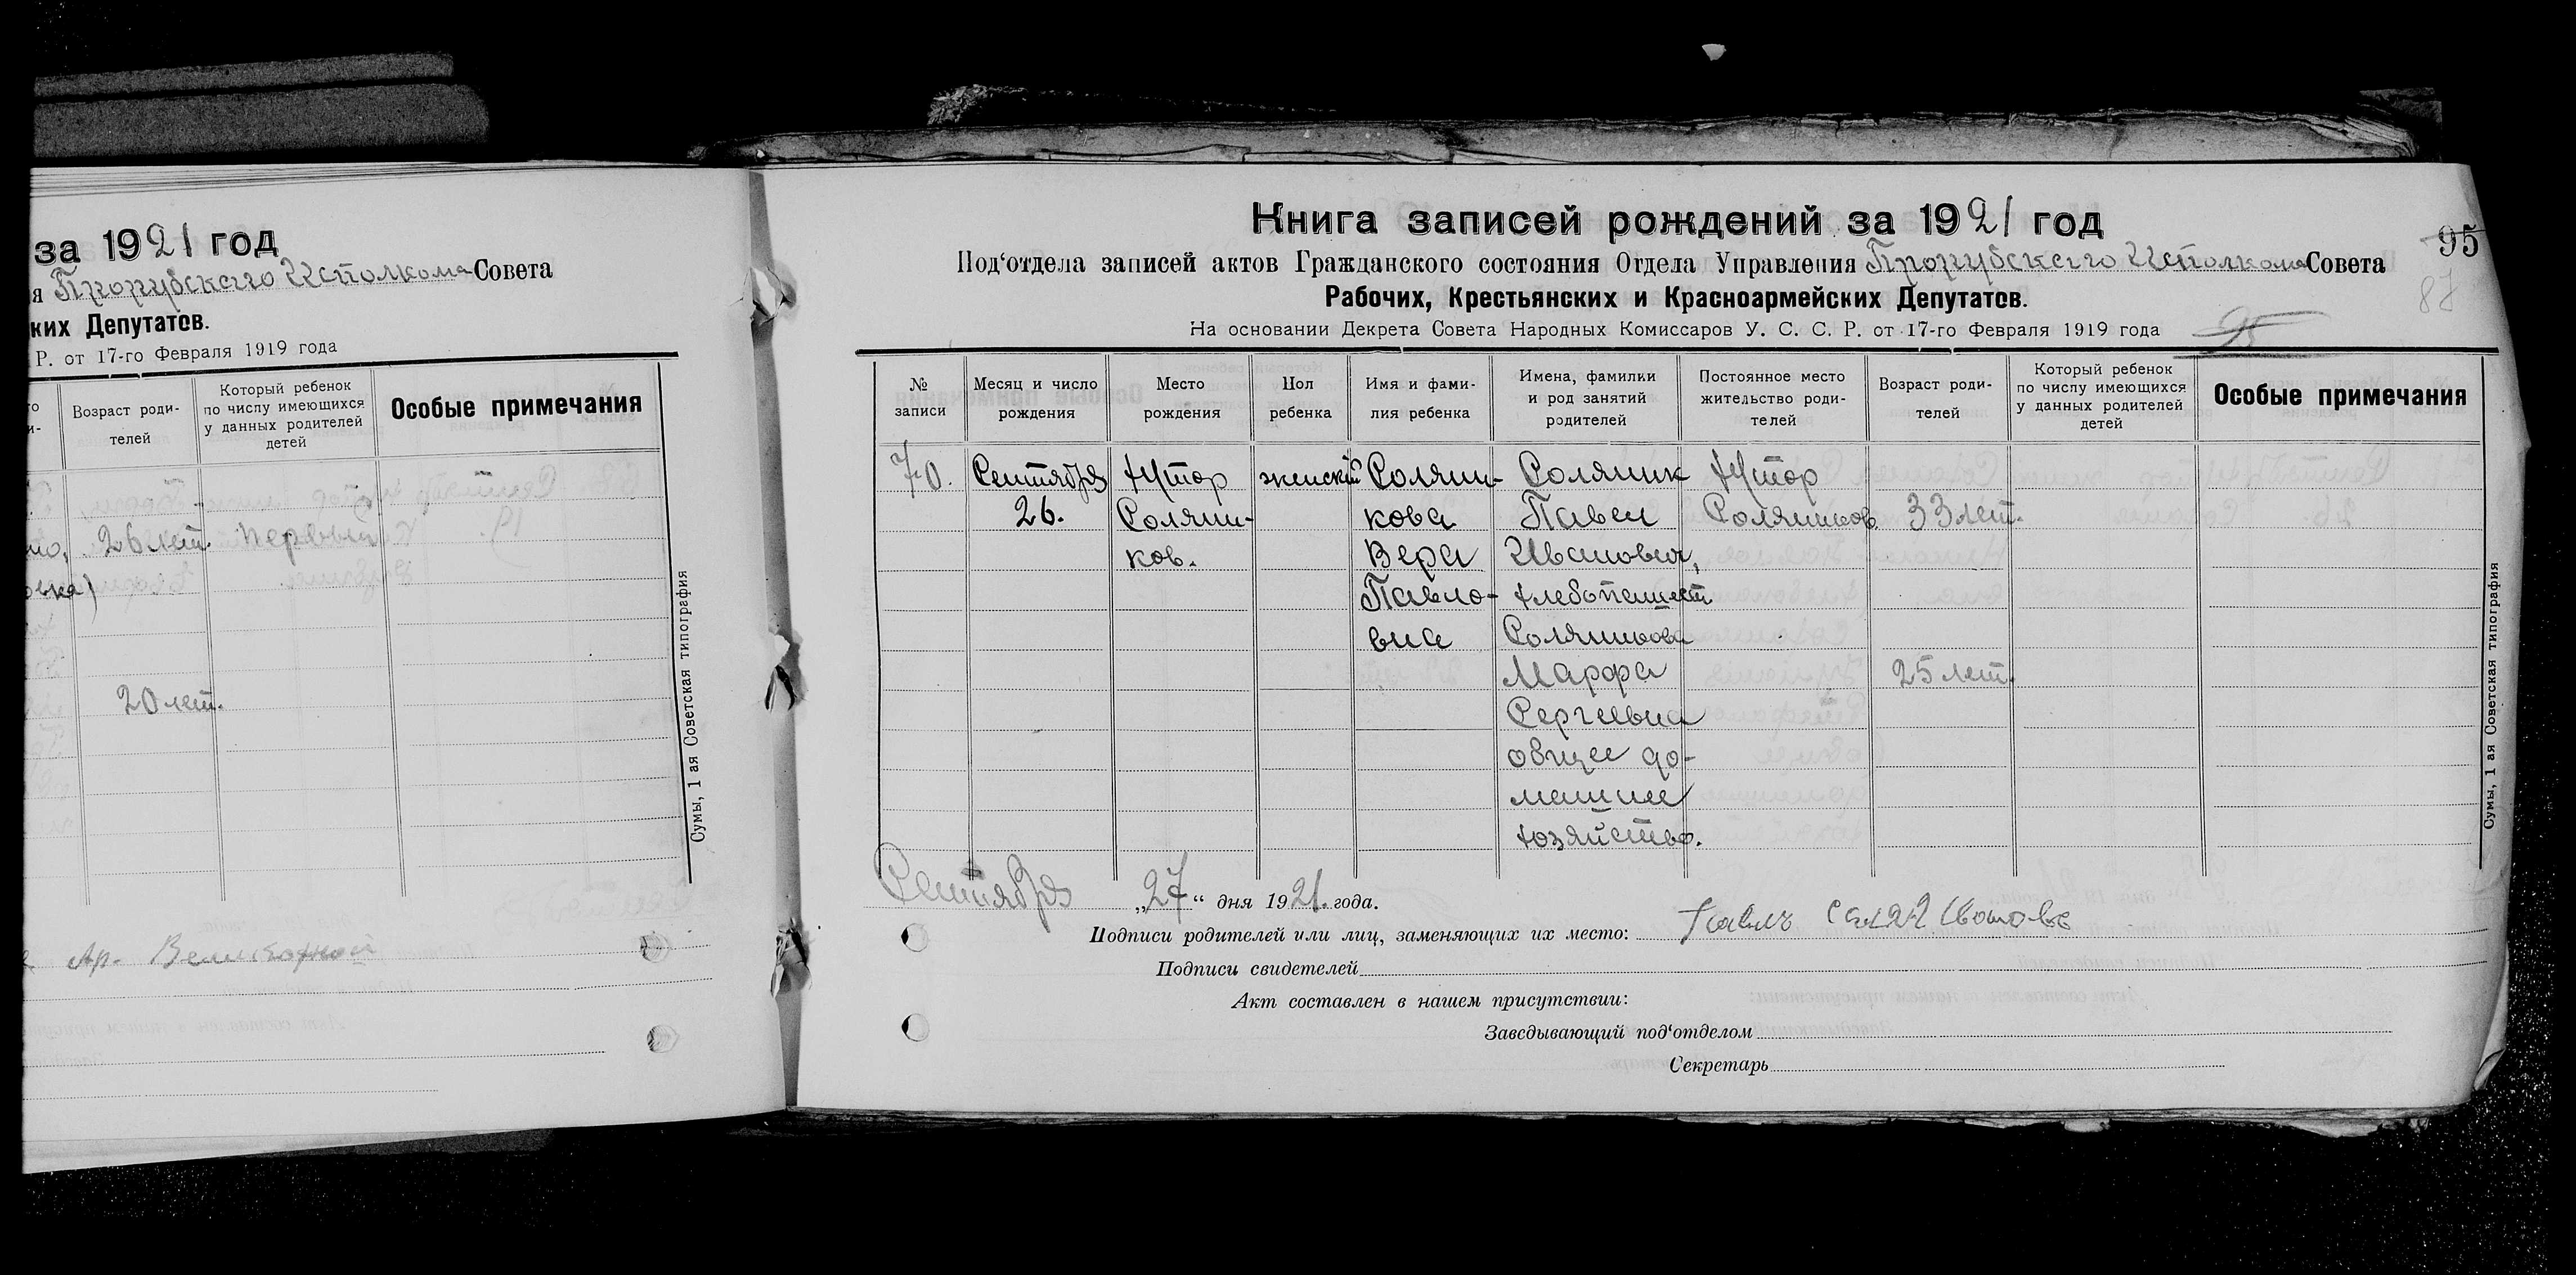 за 1921 год
я Прорубского Исполкома Совета
ких Депутатов.
Р. от 17-го Февраля 1919 года
го
и-
Возраст роди-
телей
Который ребенок
по числу имеющихся
у данных родителей
детей
Особые примечания
но, 26 лет. первый
овка)
20 лет.
Сумы, 1 ая Советская типография
Книга записей рождений за 1921 год
95
Под‘отдела записей актов Гражданского состояния Отдела Управления Прорубского Исполкома Совета
87
Рабочих, Крестьянских и Красноармейских Депутатов.
На основании Декрета Совета Народных Комиссаров У. С. С. Р. от 17-го Февраля 1919 года
95
№
записи
Месяц и число
рождения
Место
рождения
Пол
ребенка
Имя и фами-
лия ребенка
Имена, фамилки
и род занятий
родителей
Постоянное место
жительство роди-
телей
Возраст роди-
телей
Который ребенок
по числу имеющихся
у данных родителей
детей
Особые примечания
70. Сентября Хутор женский Соляни- Соляник Хутор
26. Соляни- кова Павел Соляников 33 лет.
ков. Вера Иванович,
Павло- хлебопашест
вна Соляникова
Марфа 25 лет.
Сергеевна
общее до-
машнее
хозяйство.
Сентября „27“ дня 1921. года.
Подписи родителей или лиц, заменяющих их место: Павлъ
Подписи свидетелей
Акт составлен в нашем присутствии:
Заведывающий под‘отделом
Секретарь
Сумы, 1 ая Советская типография